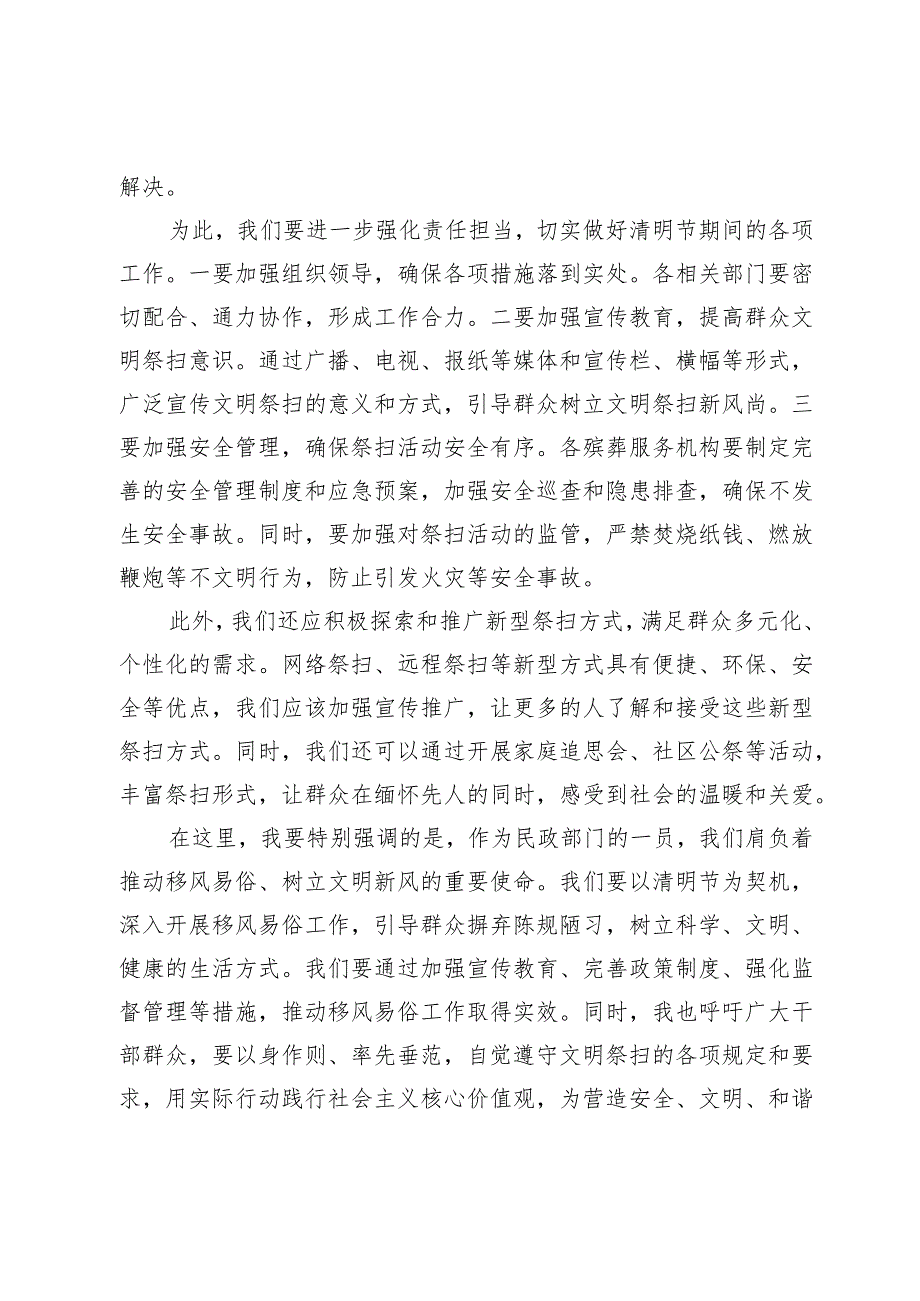 解决。
为此，我们要进一步强化责任担当，切实做好清明节期间的各项
工作。一要加强组织领导，确保各项措施落到实处。各相关部门要密
切配合、通力协作，形成工作合力。二要加强宣传教育，提高群众文
明祭扫意识。通过广播、电视、报纸等媒体和宣传栏、横幅等形式，
广泛宣传文明祭扫的意义和方式，引导群众树立文明祭扫新风尚。三
要加强安全管理，确保祭扫活动安全有序。各殡葬服务机构要制定完
善的安全管理制度和应急预案，加强安全巡查和隐患排查，确保不发
生安全事故。同时，要加强对祭扫活动的监管，严禁焚烧纸钱、燃放
鞭炮等不文明行为，防止引发火灾等安全事故。
此外，我们还应积极探索和推广新型祭扫方式，满足群众多元化、
个性化的需求。网络祭扫、远程祭扫等新型方式具有便捷、环保、安
全等优点，我们应该加强宣传推广，让更多的人了解和接受这些新型
祭扫方式。同时，我们还可以通过开展家庭追思会、社区公祭等活动，
丰富祭扫形式，让群众在缅怀先人的同时，感受到社会的温暖和关爱。
在这里，我要特别强调的是，作为民政部门的一员，我们肩负着
推动移风易俗、树立文明新风的重要使命。我们要以清明节为契机，
深入开展移风易俗工作，引导群众摒弃陈规陋习，树立科学、文明、
健康的生活方式。我们要通过加强宣传教育、完善政策制度、强化监
督管理等措施，推动移风易俗工作取得实效。同时，我也呼吁广大干
部群众，要以身作则、率先垂范，自觉遵守文明祭扫的各项规定和要
求，用实际行动践行社会主义核心价值观，为营造安全、文明、和谐